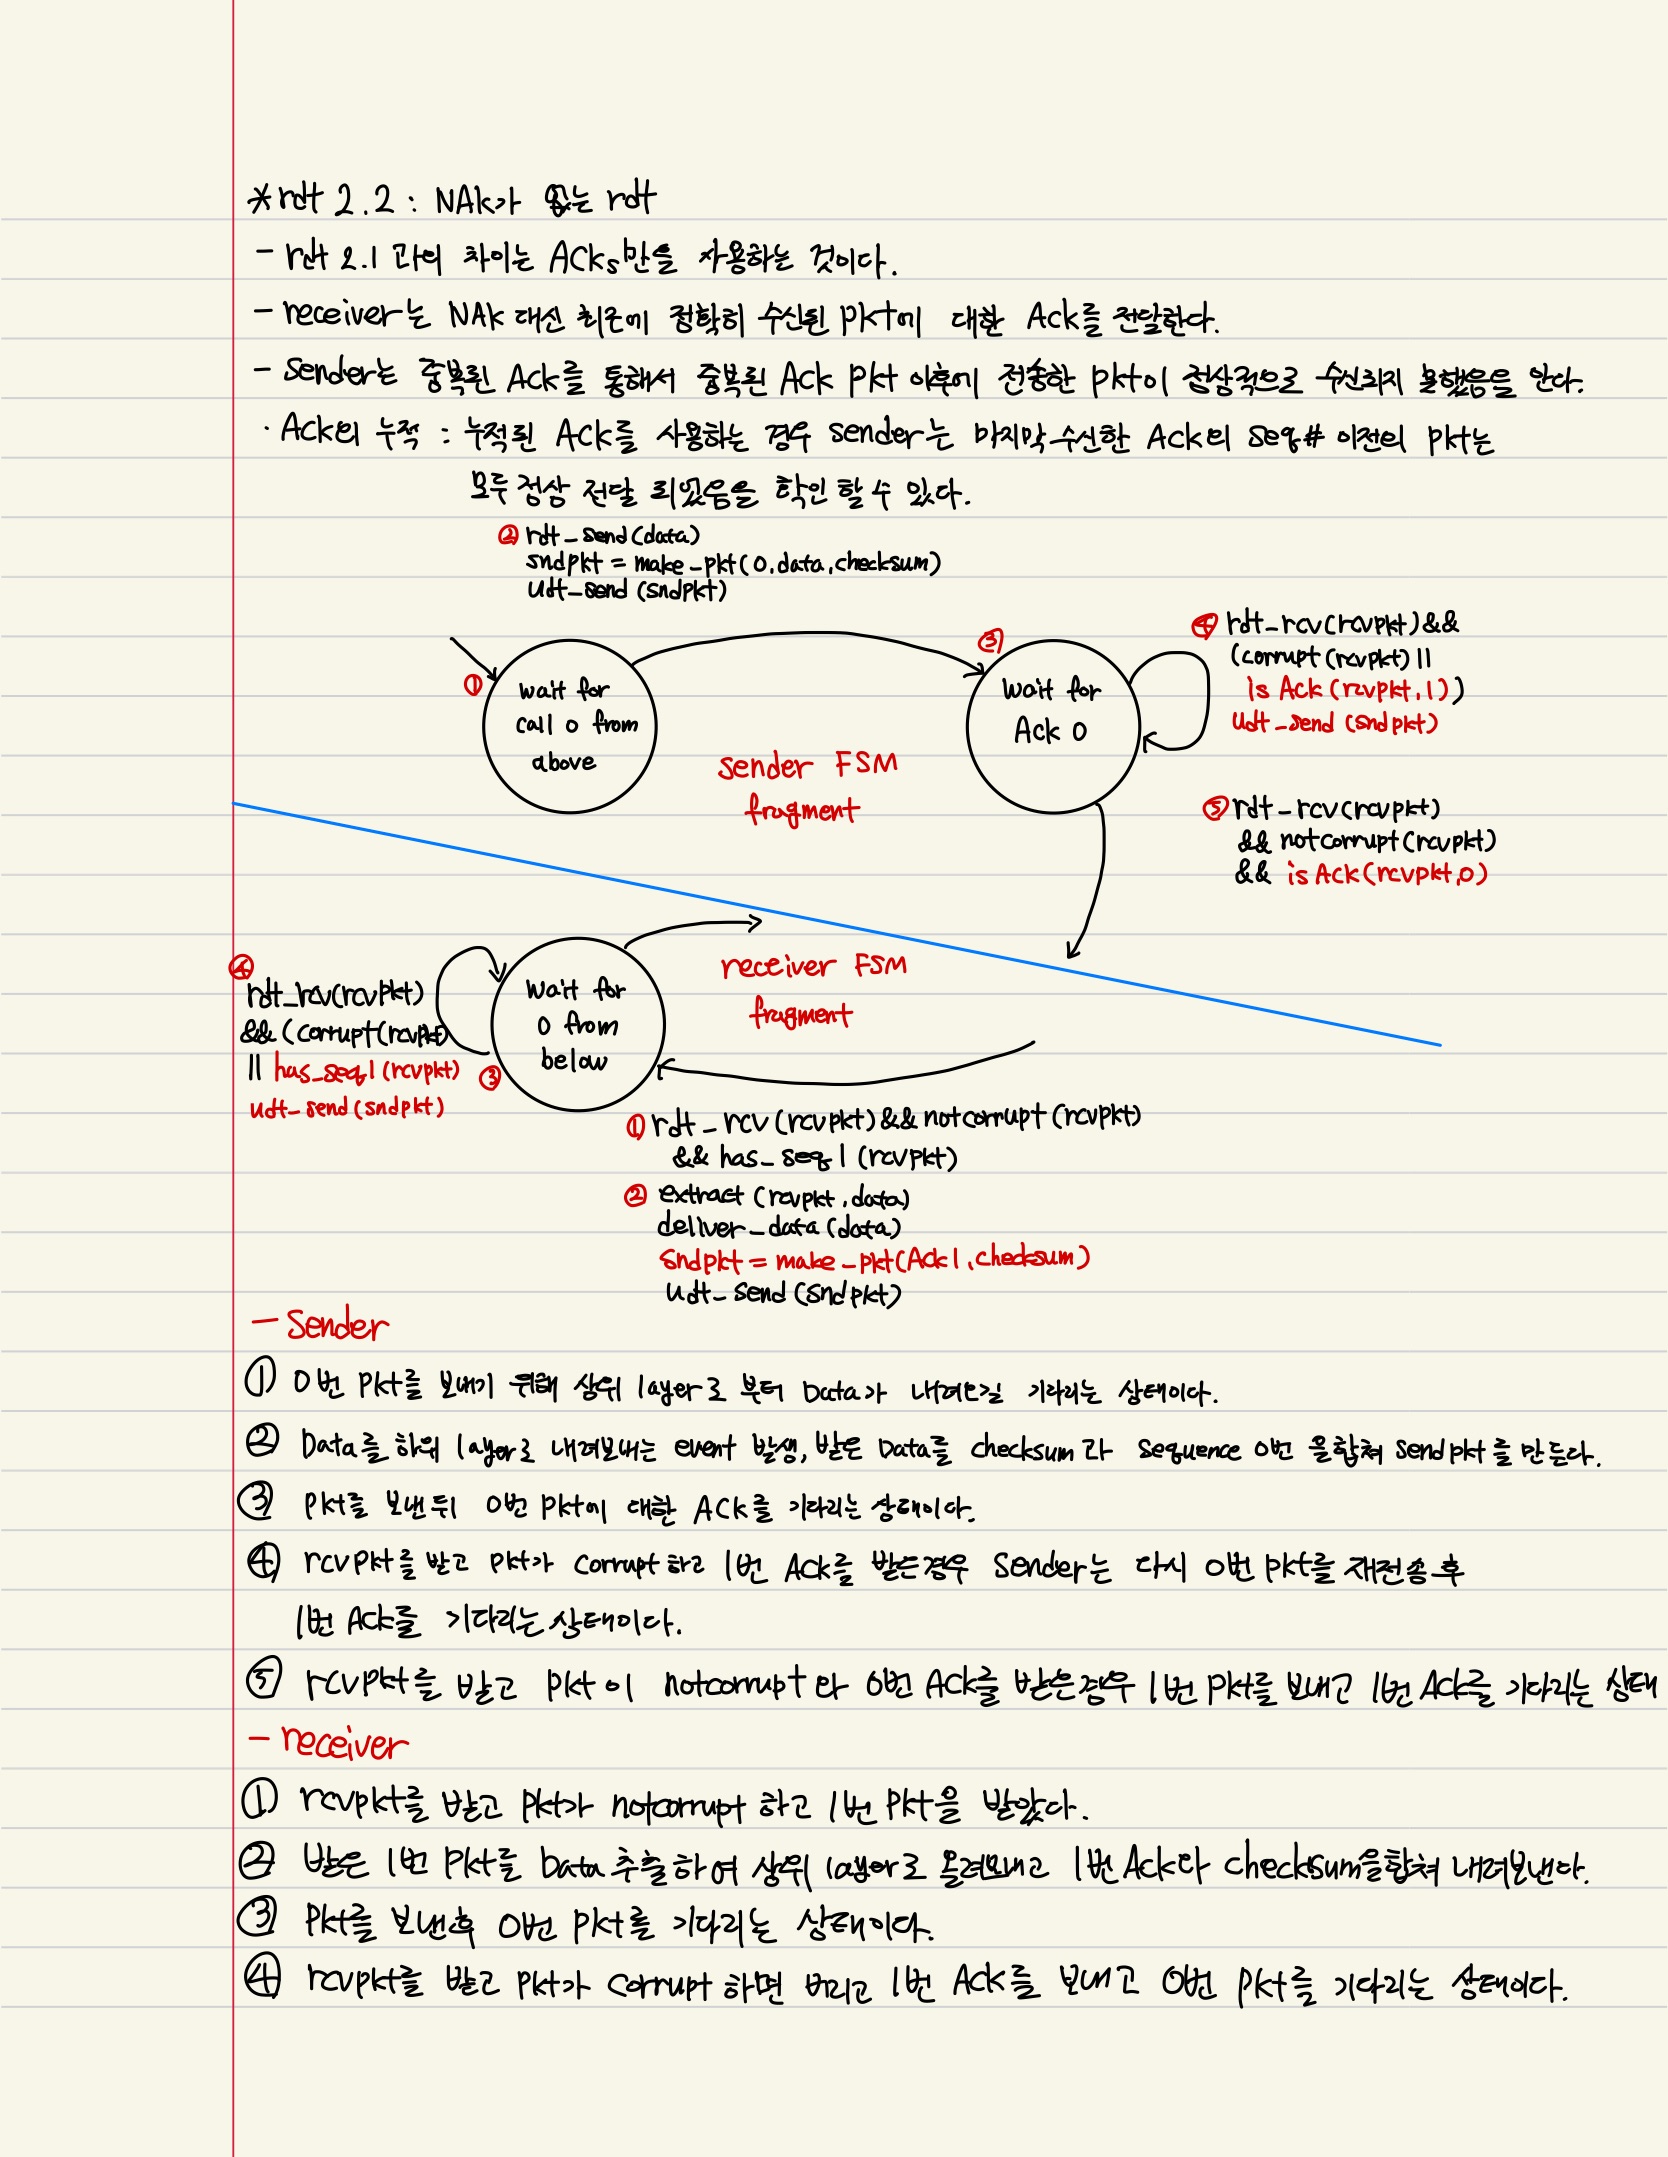 *rdt 2.2 : NAk가 없는 rdt
- rdt 2.1 과의 차이는 ACKs만을 사용하는 것이다.
- receiver는 NAK 대신 최근에 정확히 수신된 pkt에 대한 Ack를 전달한다.
- Sender는 중복된 Ack를 통해서 중복된 Ack pkt 이후에 전송한 pkt이 정상적으로 수신되지 못했음을 안다.
· Ack의 누적 : 누적된 Ack를 사용하는 경우 sender는 마지막 수신한 Ack의 seq# 이전의 pkt는
모두 정상 전달 되었음을 확인 할 수 있다.
② rdt_send(data)
sndpkt = make_pkt(0,data,checksum)
udt_send(sndpkt)
①
wait for
call 0 from
above
③
Wait for
Ack 0
④ rdt_rcv(rcvpkt) &&
(corrupt(rcvpkt) ||
is Ack(rcvpkt,1))
udt_send(sndpkt)
sender FSM
fragment
⑤ rdt_rcv(rcvpkt)
&& notcorrupt(rcvpkt)
&& is Ack(rcvpkt,0)
④
rdt_rcv(rcvpkt)
&& (corrupt(rcvpkt)
|| has_seq1(rcvpkt)
udt_send(sndpkt)
③
Wait for
0 from
below
receiver FSM
fragment
① rdt_rcv(rcvpkt) && notcorrupt(rcvpkt)
&& has_seq1(rcvpkt)
② extract(rcvpkt,data)
deliver_data(data)
sndpkt = make_pkt(Ack1,checksum)
udt_send(sndpkt)
- Sender
① 0번 pkt를 보내기 위해 상위 layer로 부터 Data가 내려오길 기다리는 상태이다.
② Data를 하위 layer로 내려보내는 event 발생, 받은 Data를 checksum과 sequence 0번 을합쳐 sendpkt를 만든다.
③ pkt를 보낸 뒤 0번 pkt에 대한 ACK를 기다리는 상태이다.
④ rcvpkt를 받고 pkt가 corrupt 하고 1번 Ack를 받은경우 Sender는 다시 0번 pkt를 재전송 후
1번 Ack를 기다리는 상태이다.
⑤ rcvpkt를 받고 pkt이 notcorrupt 와 0번 Ack를 받은경우 1번 pkt를 보내고 1번 Ack를 기다리는 상태
- receiver
① rcvpkt를 받고 pkt가 notcorrupt 하고 1번 pkt을 받았다.
② 받은 1번 pkt를 Data 추출하여 상위 layer로 올려보내고 1번 Ack와 checksum을합쳐 내려보낸다.
③ pkt를 보낸후 0번 pkt를 기다리는 상태이다.
④ rcvpkt를 받고 pkt가 corrupt 하면 버리고 1번 Ack를 보내고 0번 pkt를 기다리는 상태이다.